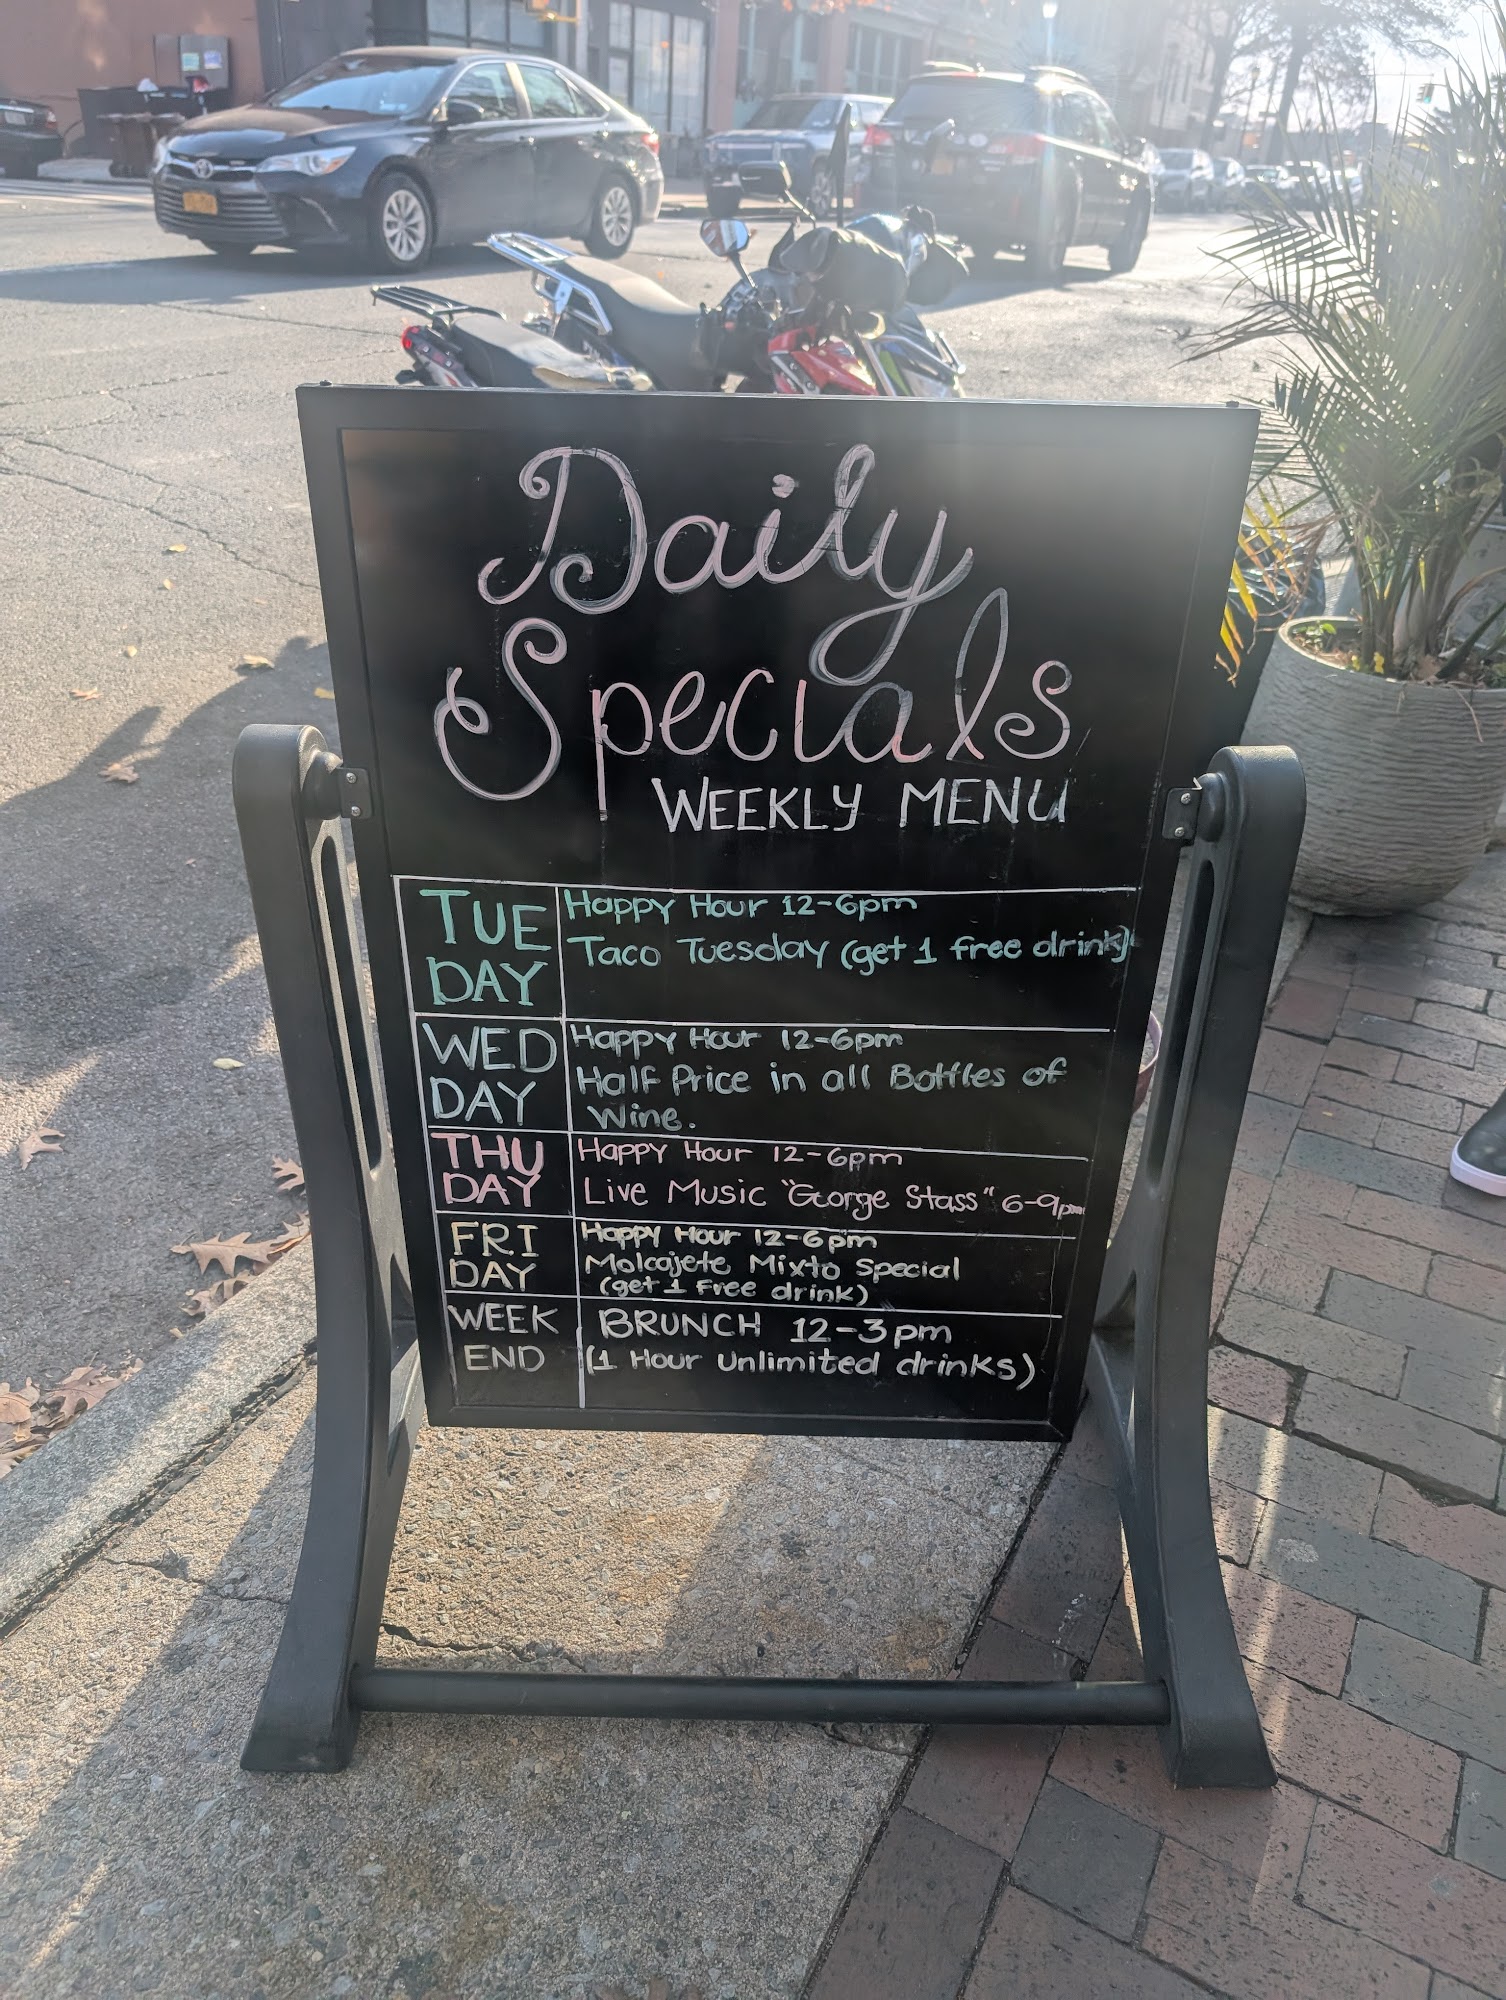 Daily
Specials
WEEKLY MENU
TUE
DAY
Happy Hour 12-6pm
Taco Tuesday (get 1 free drink)
WED
DAY
Happy Hour 12-6pm
Half Price in all Bottles of
Wine.
THU
DAY
Happy Hour 12-6pm
Live Music "George Stass" 6-9pm
FRI
DAY
Happy Hour 12-6pm
Molcajete Mixto Special
(get 1 Free drink)
WEEK
END
BRUNCH 12-3pm
(1 Hour Unlimited drinks)